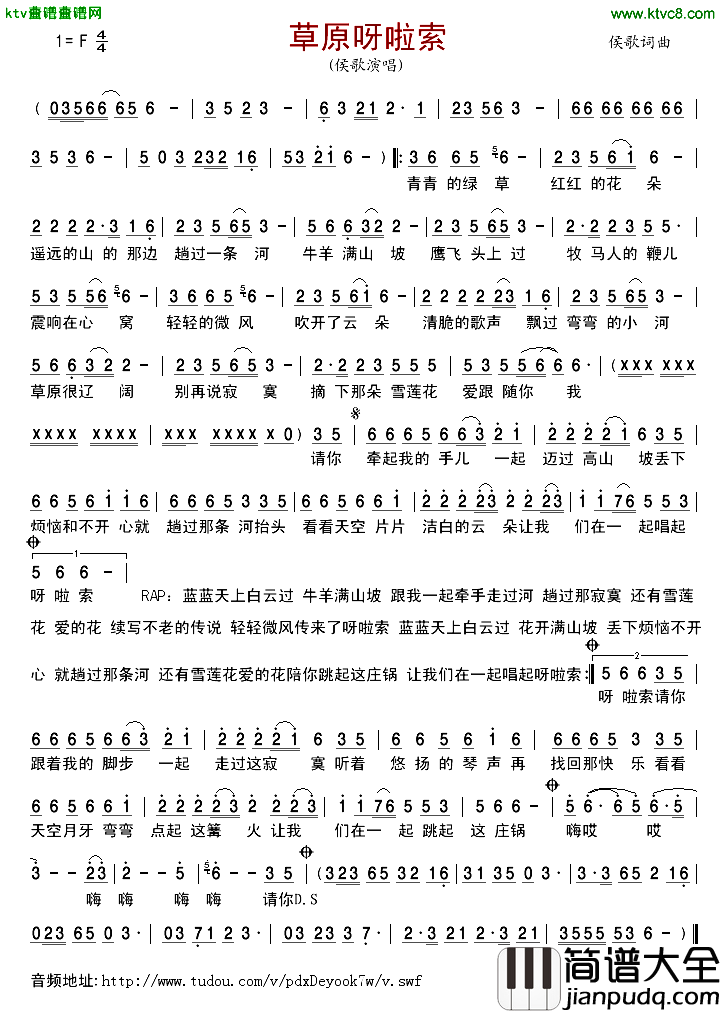 ktv查谱查谱网
www.ktvc8.com
草原呀啦索
1= F 4/4
侯歌词曲
(侯歌演唱)
( 0 3 5 6 6 6 5 6 - | 3 5 2 3 - | 6 3 2 1 2 · 1 | 2 3 5 6 3 - | 6 6 6 6 6 6 6 6
3 5 3 6 - | 5 0 3 2 3 2 1 6 | 5 3 2 1 6 - ) ‖: 3 6 6 5 5 6 - | 2 3 5 6 1 6 - |
青青 的绿 草 红红 的花 朵
2 2 2 2 · 3 1 6 | 2 3 5 6 5 3 - | 5 6 6 3 2 2 - | 2 3 5 6 5 3 - | 2 · 2 2 3 5 5 · |
遥远的山 的 那边 趟过一条 河 牛羊 满山 坡 鹰飞 头上 过 牧 马人的 鞭儿
5 3 5 5 6 6 - | 3 6 6 5 6 - | 2 3 5 6 1 6 - | 2 2 2 2 2 3 1 6 | 2 2 3 5 6 5 3 |
震响在心 窝 轻轻的微 风 吹开了云 朵 清脆的歌声 飘过 弯弯 的小 河
5 6 6 3 2 2 - | 2 3 5 6 5 3 | 2 2 3 5 5 5 | 5 3 5 5 6 6 6 · | ( X X X X X X X
草原很辽 阔 别再说寂 寞 摘 下那朵 雪莲花 爱跟 随你 我
X X X X X X X X | X X X X X X X 0 ) 3 5 | 6 6 6 5 6 6 3 2 1 | 2 2 2 2 1 6 3 5 |
请你 牵起我的 手儿 一起 迈过 高山 坡丢下
6 6 5 6 1 1 2 | 6 6 6 5 3 3 5 | 6 3 5 6 6 1 | 2 2 2 2 3 2 2 3 | 1 1 7 6 5 5 5 |
烦恼和不开 心就 趟过那条 河抬头 看看天空 片片 洁白的云 朵让我 们在一 起唱起
1
5 6 6 - |
呀 啦 索 RAP: 蓝蓝天上白云过 牛羊满山坡 跟我一起牵手走过河 趟过那寂寞 还有雪莲
花 爱的花 续写不老的传说 轻轻微风传来了呀啦索 蓝蓝天上白云过 花开满山坡 丢下烦恼不开
心 就趟过那条河 还有雪莲花爱的花陪你跳起这庄锅 让我们在一起唱起呀啦索:‖ 2 5 6 6 3 5 |
呀 啦索请你
6 6 6 5 6 6 3 2 1 | 2 2 2 2 1 6 3 5 | 6 3 5 6 5 6 1 6 | 6 6 6 5 3 3 5 |
跟着我的 脚步 一起 走过这寂 寞听着 悠 扬的 琴声再 找回那快 乐看看
6 6 5 6 6 1 | 2 2 2 2 3 2 2 3 | 1 1 7 6 5 5 5 | 5 6 6 - | 5 6 · 6 5 6 · 5 |
天空月牙 弯弯 点起 这篝 火 让我 们在一 起 跳起 这 庄锅 嗨哎 哎
3 - - 2 3 | 2 - - 5 | 5 6 - - 3 5 | ( 3 2 3 6 5 3 2 1 6 | 3 1 3 5 0 3 | 3 · 3 6 5 2 1 6 |
嗨 嗨 嗨 嗨 请你D.S
0 2 3 6 5 3 · | 0 3 7 1 2 3 · | 0 3 2 3 3 7 · | 2 · 3 2 1 2 · 3 2 1 | 3 5 5 5 5 3 · )‖
音频地址:http://www.tudou.com/v/pdxDeyook7w/v.swf
简谱大全
jianpudq.com